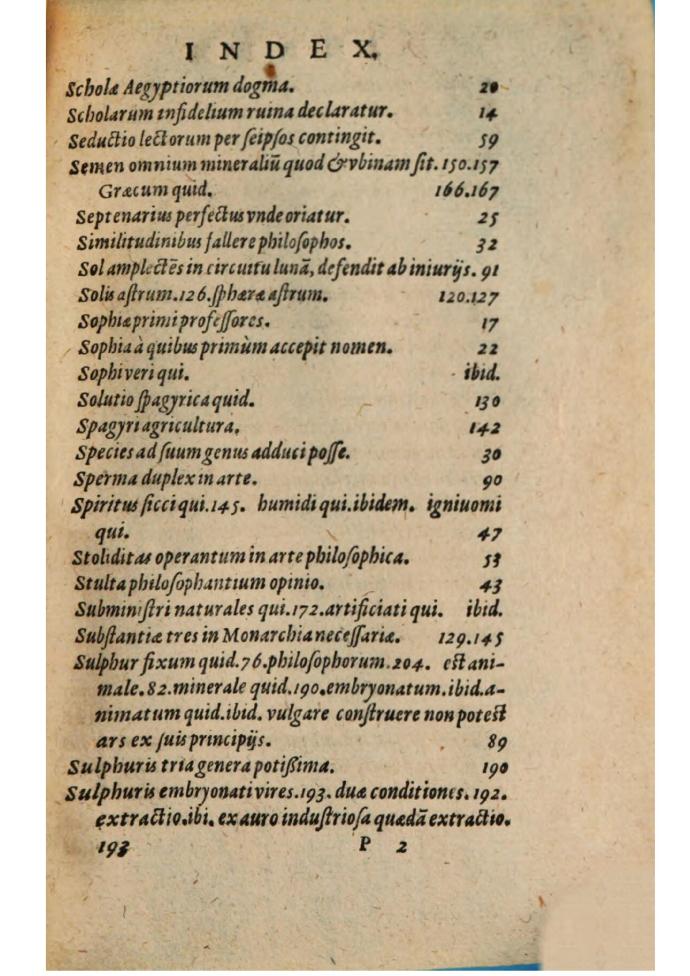 INDEX.
Scholæ Aegyptiorum dogma. 20
Scholarum infidelium ruina declaratur. 14
Seductio lectorum per ſeipſos contingit. 59
Semen omnium mineraliũ quod & vbinam ſit. 150.157
Græcum quid. 166.167
Septenarius perfectus vnde oriatur. 25
Similitudinibus fallere philoſophos. 32
Sol amplectẽs in circuitu lunã, defendit ab iniurijs. 91
Solis aſtrum.126.ſphæræ aſtrum. 120.127
Sophiæ primi profeſſores. 17
Sophia à quibus primùm accepit nomen. 22
Sophi veri qui. ibid.
Solutio ſpagyrica quid. 130
Spagyri agricultura. 142
Species ad ſuum genus adduci poſſe. 30
Sperma duplex in arte. 90
Spiritus ſicci qui.145. humidi qui.ibidem. igniuomi
qui. 47
Stoliditas operantum in arte philoſophica. 53
Stulta philoſophantium opinio. 43
Subminiſtri naturales qui.172.artificiati qui. ibid.
Subſtantiæ tres in Monarchia neceſſariæ. 129.145
Sulphur fixum quid.76.philoſophorum.204. est ani-
male.82.minerale quid.190.embryonatum.ibid.a-
nimatum quid.ibid. vulgare conſtruere non potest
ars ex ſuis principijs. 89
Sulphuris tria genera potißima. 190
Sulphuris embryonati vires.193. duæ conditiones.192.
extractio.ibi. ex auro induſtrioſa quædã extractio.
193 P 2